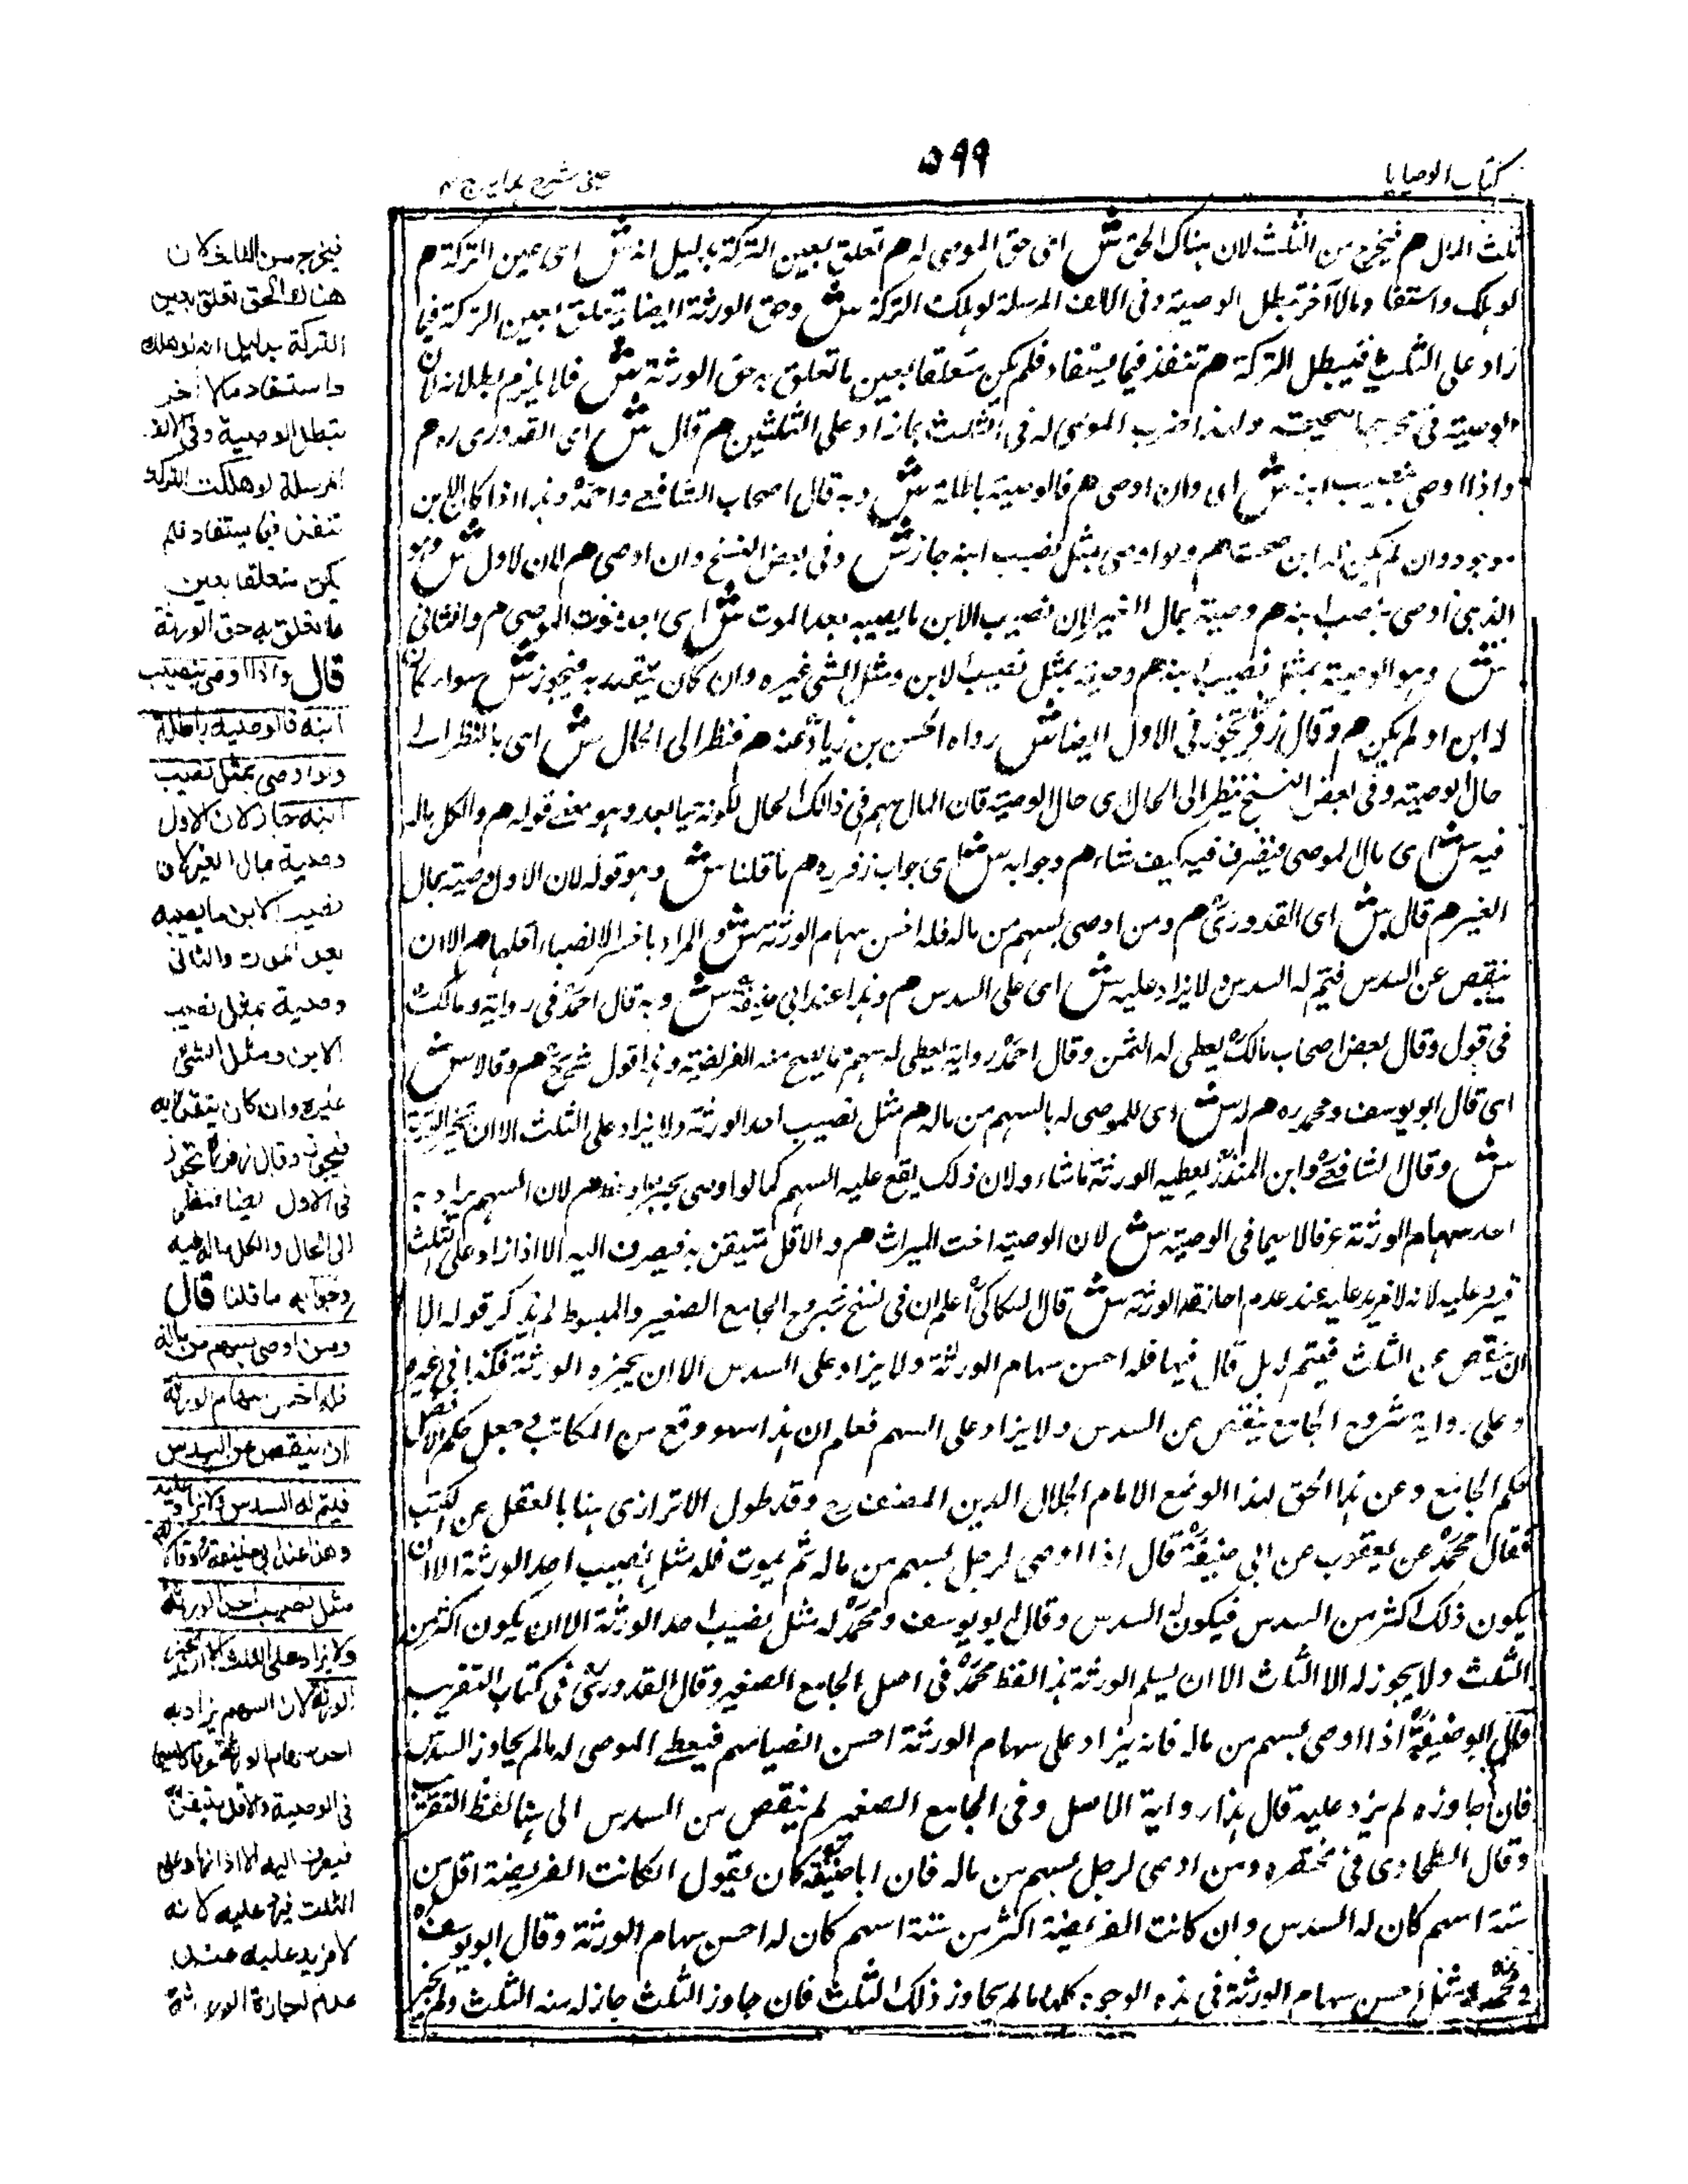 كتاب الوصايا
٥٩٩
عينى شرح هدايه ج ٤
ثلث المال هم فيخرج من الثلث لان هناك الحق ش اى حق الموصى له هم تعلق بعين التركة بدليل انه ش اى عين التركة هم
لو هلك واستفاد مالا آخر تبطل الوصية وفى الالف المرسلة لو هلكت التركة ش وحق الورثة ايضا يتعلق بعين التركة فيما
زاد على الثلث فيبطل التركة هم تنفذ فيما يستفاد فلم يكن متعلقا بعين ما تعلق به حق الورثة ش فلا يلزم بطلانه لان
الوصية فى مخرجها صحيحة ولهذا ضرب الموصى له فى الثلث بما زاد على الثلثين هم قال ش اى القدورى ره هم
واذا اوصى بنصيب ابنه ش اى وان اوصى هم فالوصية باطلة ش وبه قال اصحاب الشافعے واحمدؒ وهذا اذا كان الابن
موجود وان لم يكن له ابن صحت هم ولو اوصى بمثل نصيب ابنه جاز ش وفى بعض النسخ وان اوصى هم لان لاول ش وهو
الذى اوصى بنصيب ابنه هم وصية بمال الغير لان نصيب الابن ما يصيبه بعد الموت ش اى بعد موت الموصى هم والثانى
ش وهو الوصية بمثل نصيب ابنه هم وصية بمثل نصيب الابن ومثل الشى غيره وان كان يتقدر به فيجوز ش سواء كان
له ابن او لم يكن هم وقال زفرؒ تجوز فى الاول ايضا ش رواه الحسن بن زيادؒ عنه هم فنظر الى الحال ش اى بالنظر الے
حال الوصية وفى بعض النسخ ننظر الى الحال اى حال الوصية فان المال لهم فى ذالك الحال لكونه حيا بعد وهو معنے قوله هم والكل ماله
فيه ش اى مال الموصى فيتصرف فيه كيف شاء هم وجوابه ش اى جواب زفر ره هم ما قلنا ش وهو قوله لان الاول وصية بمال
الغير هم قال ش اى القدورىؒ هم ومن اوصى بسهم من ماله فله اخس سهام الورثة ش والمراد باخس الانصباء اقلها هم الا ان
ينقص عن السدس فيتم له السدس ولا يزاد عليه ش اى على السدس هم وهذا عند ابى حنيفةؒ ش وبه قال احمدؒ فى رواية ومالكؒ
فى قول وقال بعض اصحاب مالكؒ يعطى له الثمن وقال احمدؒ رواية يعطى له سهم مما يصح منه الفريضة وهذا قول شريحؒ هم وقالا ش
اى قال ابو يوسف ومحمد ره هم له ش اى للموصى له بالسهم من ماله هم مثل نصيب احد الورثة ولا يزاد على الثلث الا ان يجيز الورثة
ش وقال الشافعےؒ وابن المنذرؒ يعطيه الورثة ما شاء ولان ذلك يقع عليه السهم كما لو اوصى بجزء هم لان السهم يراد به
احد سهام الورثة عرفا لا سيما فى الوصية ش لان الوصية اخت الميراث هم والاقل متيقن به فيصرف اليه الا اذا زاد على الثلث
فيرد عليه لانه لا مزيد عليه عند عدم اجازة الورثة ش قال السكاكىؒ اعلم ان فى نسخ شروح الجامع الصغير والمبسوط لم يذكر قوله الا
ان ينقص عن الثلث فيتم له بل قال فيها فله احسن سهام الورثة ولا يزاد على السدس الا ان يجيزه الورثة فكذا فى غيره
وعلى رواية شروح الجامع ينقص عن السدس ولا يزاد على السهم فعلم ان هذا سهو وقع من الكاتب جعل حكم الاصل
حكم الجامع وعن هذا الحق لهذا الوضع الامام الجلال الدين المصنف رح وقد طول الاترازى هنا بالنقل عن الكتب
فقال محمدؒ عن يعقوب عن ابى حنيفةؒ قال اذا اوصى لرجل بسهم من ماله ثم يموت فله مثل نصيب احد الورثة الا ان
يكون ذلك اكثر من السدس فيكون له السدس وقال ابو يوسف ومحمدؒ له مثل نصيب احد الورثة الا ان يكون اكثر من
الثلث ولا يجوز له الا الثلث الا ان يسلم الورثة هذا لفظ محمدؒ فى اصل الجامع الصغير وقال القدورىؒ فى كتاب التقريب
قال ابو حنيفةؒ اذا اوصى بسهم من ماله فانه يزاد على سهام الورثة احسن انصبائهم فيعطے الموصى له ما لم يجاوز السدس
فان جاوزه لم يزد عليه قال هذا رواية الاصل وفى الجامع الصغير لم ينقص من السدس الى هنا لفظ التقريب
وقال الطحاوى فى مختصره ومن اوصى لرجل بسهم من ماله فان ابا حنيفة كان يقول ان كانت الفريضة اقل من
ستة اسهم كان له السدس وان كانت الفريضة اكثر من ستة اسهم كان له احسن سهام الورثة وقال ابو يوسف
ومحمدؒ مثل احسن سهام الورثة فى هذه الوجوه كلها ما لم يجاوز ذلك الثلث فان جاوز الثلث جاز له منه الثلث ولم يجز
فيخرج من الثلث لان
هناك الحق تعلق بعين
التركة بدليل انه لو هلك
واستفاد مالا آخر
تبطل الوصية وفى الالف
المرسلة لو هلكت التركة
تنفذ فيما يستفاد فلم
يكن متعلقا بعين
ما تعلق به حق الورثة
قال واذا اوصى بنصيب
ابنه فالوصية باطلة
ولو اوصى بمثل نصيب
ابنه جاز لان الاول
وصية بمال الغير لان
نصيب الابن ما يصيبه
بعد الموت والثانى
وصية بمثل نصيب
الابن ومثل الشئ
غيره وان كان يتقدر به
فيجوز وقال زفرؒ تجوز
فى الاول ايضا فنظر
الى الحال والكل ماله فيه
وجوابه ما قلنا قال
ومن اوصى بسهم من ماله
فله اخس سهام الورثة
الا ان ينقص عن السدس
فيتم له السدس ولا يزاد عليه
وهذا عند ابى حنيفةؒ وقالا له
مثل نصيب احد الورثة
ولا يزاد على الثلث الا ان يجيز
الورثة لان السهم يراد به
احد سهام الورثة عرفا لا سيما
فى الوصية والاقل متيقن
فيصرف اليه الا اذا زاد على
الثلث فيرد عليه لانه
لا مزيد عليه عند
عدم اجازة الورثة